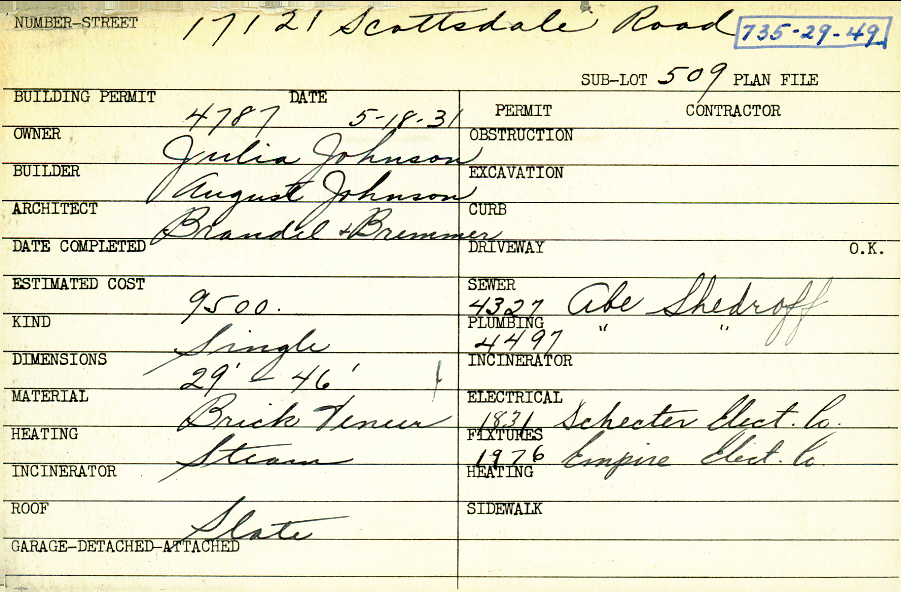 NUMBER-STREET 17121 Scottsdale Road 735-29-49
SUB-LOT 509 PLAN FILE
BUILDING PERMIT 4787 DATE 5-18-31
OWNER Julia Johnson
BUILDER August Johnson
ARCHITECT Brandel & Bremmer
DATE COMPLETED
ESTIMATED COST 9500.
KIND Single
DIMENSIONS 29' - 46'
MATERIAL Brick Veneer
HEATING Steam
INCINERATOR
ROOF Slate
GARAGE-DETACHED-ATTACHED
PERMIT CONTRACTOR
OBSTRUCTION
EXCAVATION
CURB
DRIVEWAY O.K.
SEWER
4327 Abe Shedroff
PLUMBING
4497 " "
INCINERATOR
ELECTRICAL
1831 Schecter Elect. Co.
FIXTURES
1976 Empire Elect. Co.
HEATING
SIDEWALK